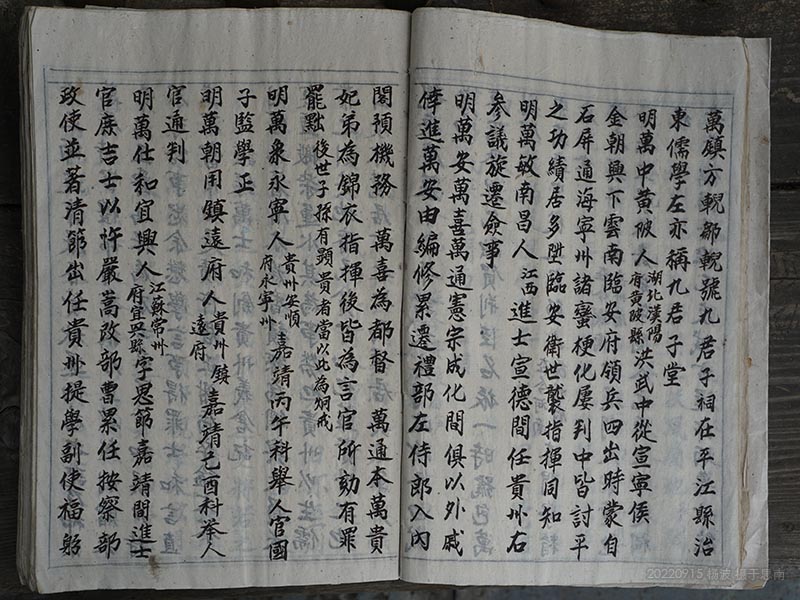 萬鎮方輗鄒輗號九君子祠在平江縣治
東儒學左亦稱九君子堂
明萬中黃陂人湖北漢陽府黃陂縣洪武中從宣寧侯
金朝興下雲南臨安府領兵四出時蒙自
石屏通海寧州諸蠻梗化屢到中皆討平
之功績居多陞臨安衛世襲指揮同知
明萬敏南昌人江西進士宣德間任貴州右
參議旋遷僉事
明萬安萬喜萬通憲宗成化間俱以外戚
倖進萬安由編修累遷禮部左侍郎入內
閣預機務萬喜為都督萬通本萬貴
妃弟為錦衣指揮後皆為言官所劾有罪
罷黜後世子孫有顕貴者當以此為炯戒
明萬象永寧人貴州安順府永寧州嘉靖丙午科舉人官國
子監學正
明萬朝用鎮遠府人貴州鎮遠府嘉靖己酉科举人
官通判
明萬仕和宜興人江蘇常州府宜興縣字思節嘉靖間進士
官庶吉士以忤嚴嵩改部曹累任按察部
政使並著清節出任貴州提學副使福躬
20220915 杨波 摄于思南